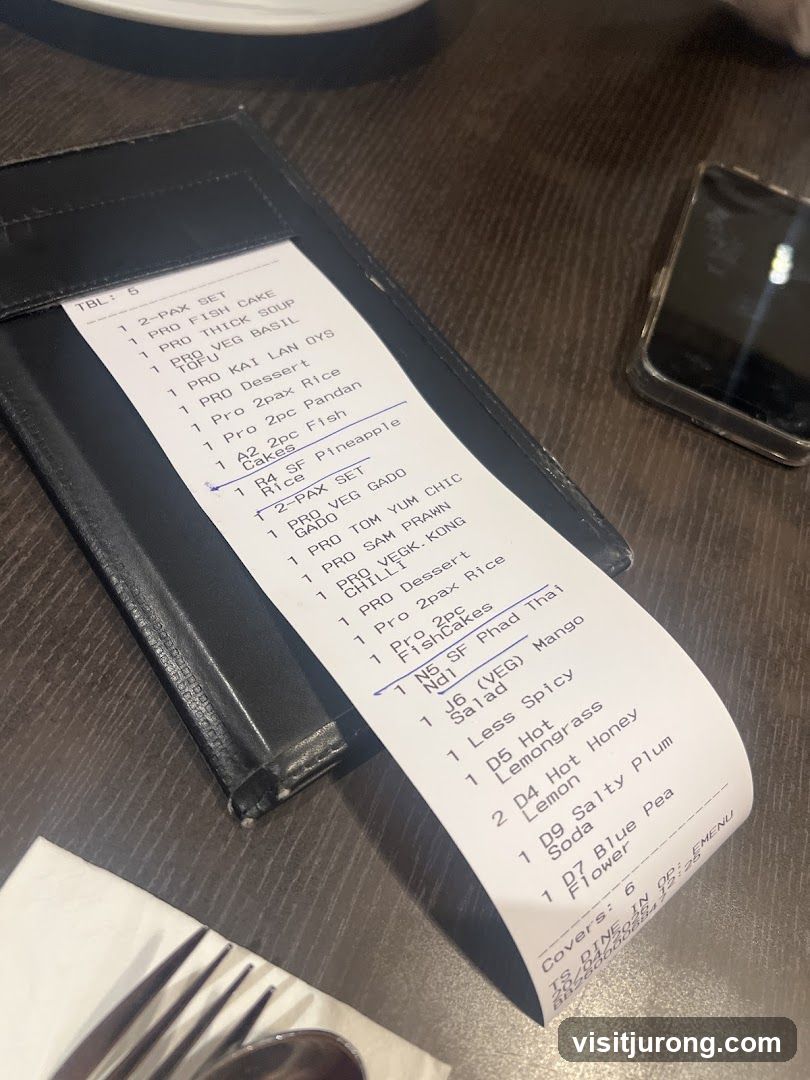 TBL: 5
1 2-PAX SET
1 PRO FISH CAKE
1 PRO THICK SOUP
1 PRO VEG BASIL
TOFU
1 PRO KAI LAN OYS
1 PRO Dessert
1 Pro 2pax Rice
1 Pro 2pc Pandan
1 A2 2pc Fish
Cakes
1 R4 SF Pineapple
Rice
1 2-PAX SET
1 PRO VEG GADO
GADO
1 PRO TOM YUM CHIC
1 PRO SAM PRAWN
1 PRO VEGK.KONG
CHILLI
1 PRO Dessert
1 Pro 2pax Rice
1 Pro 2pc
FishCakes
1 N5 SF Phad Thai
Ndl
1 J6 (VEG) Mango
Salad
1 Less Spicy
1 D5 Hot
Lemongrass
2 D4 Hot Honey
Lemon
1 D9 Salty Plum
Soda
1 D7 Blue Pea
Flower
Covers: 6
TS DINE IN OP: EMENU
visitjurong.com